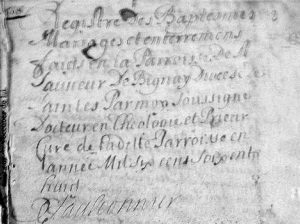 Registre des Baptesmes
Mariages et enterremens
faicts en la Parroisse de St
Sauveur De Bignay diocese
Saintes Par moy Soussigné
Docteur en Theologie et Prieur
Curé de ladite Parroisse en
l'année Mil Six cens Soixente
huict